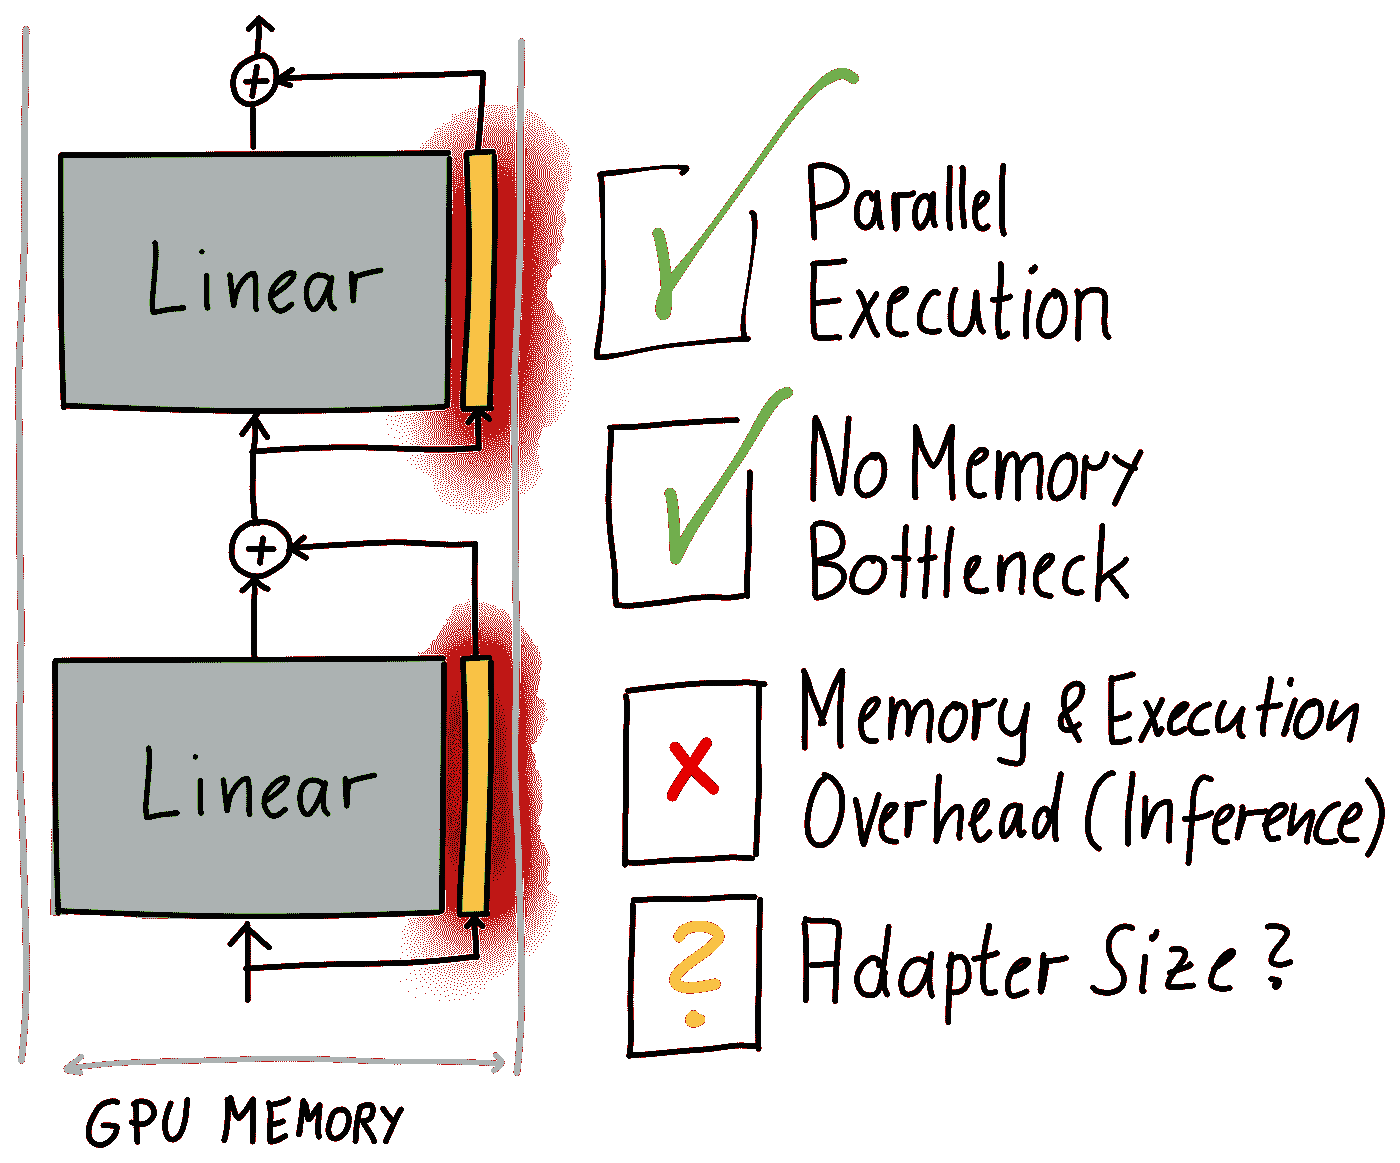 Linear
Linear
GPU MEMORY
Parallel
Execution
No Memory
Bottleneck
Memory & Execution
Overhead (Inference)
Adapter Size?